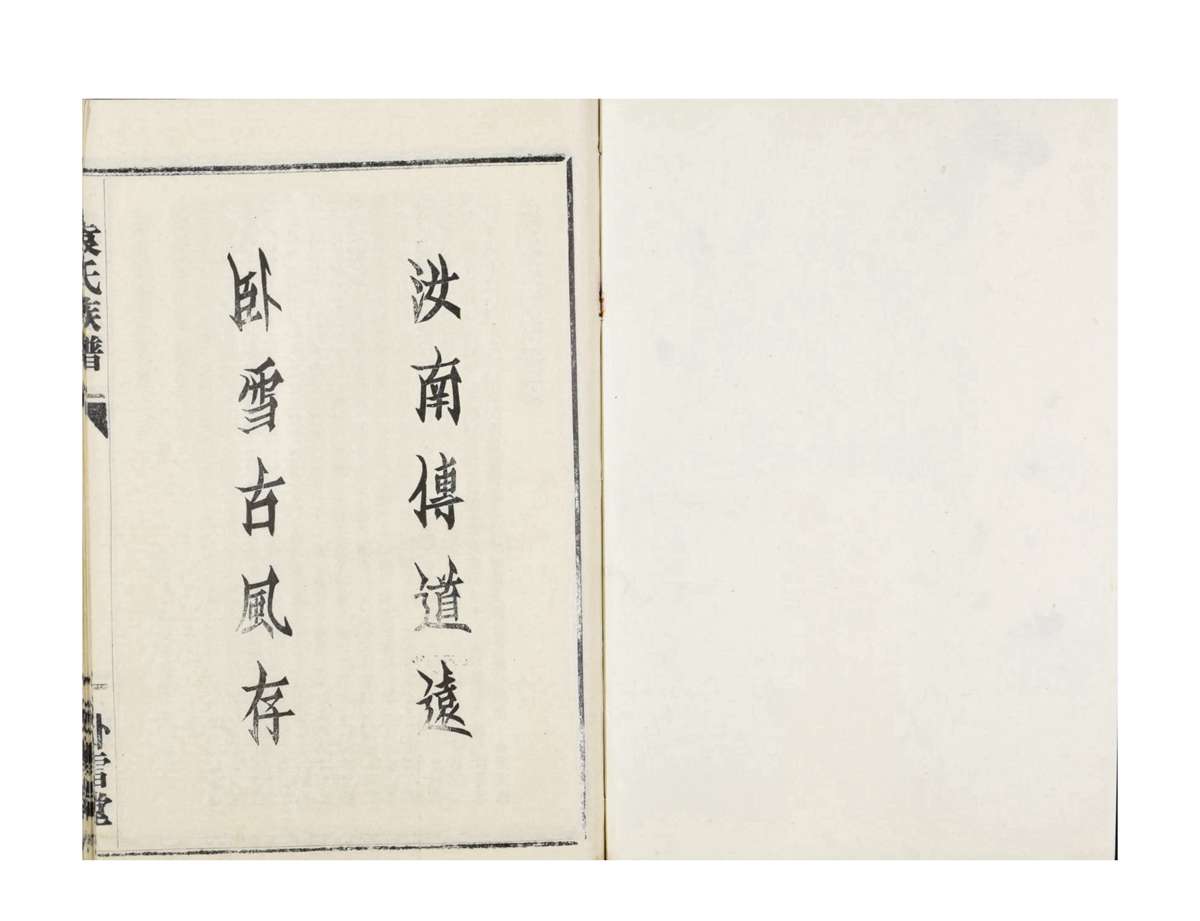 汝南傳道遠
卧雪古風存
袁氏族譜
卧雪堂